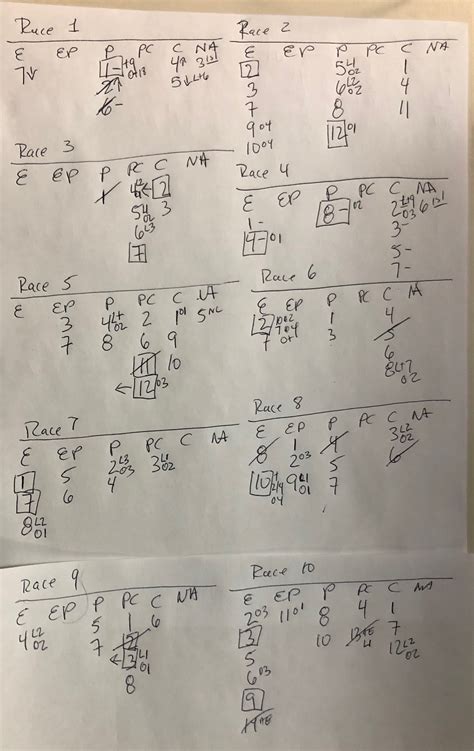 Race 1
E EP P PC C NA
7↓ 1- +9 0+13 4↑ 3 1st
2↑ 5↓ L+6
6-
Race 2
E EP P PC C NA
2 5 L1 02 1
3 6 L2 02 4
7 8 11
9 04 12 01
10 04
Race 3
E EP P PC C NA
1 4 L2 ← 2
5 L1 02 3
6 L3
7
Race 4
E EP P PC C NA
1- 8- 02 2 +9 03 6 1st
4- 01 3-
5-
7-
Race 5
E EP P PC C NA
3 4 L+ 02 2 1 01 5 NL
7 8 6 9
11 10
← 12 03
Race 6
E EP P PC C NA
2 10 02 1 4
7 04 3 5
7 0+ 6
8 L+7 02
Race 7
E EP P PC C NA
1 5 2 L3 03 3 L1 02
7 6 4
8 L2 01
Race 8
E EP P PC C NA
8 1 4 3 L2 02
2 03 5 6
10 04 9 L1 01 7
Race 9
E EP P PC C NA
4 L2 02 5 1 6
7 2
← 3 L1 01
8
Race 10
E EP P PC C NA
2 03 11 01 8 4 1
3 10 13 7
5 12 L2 02
6 03
9